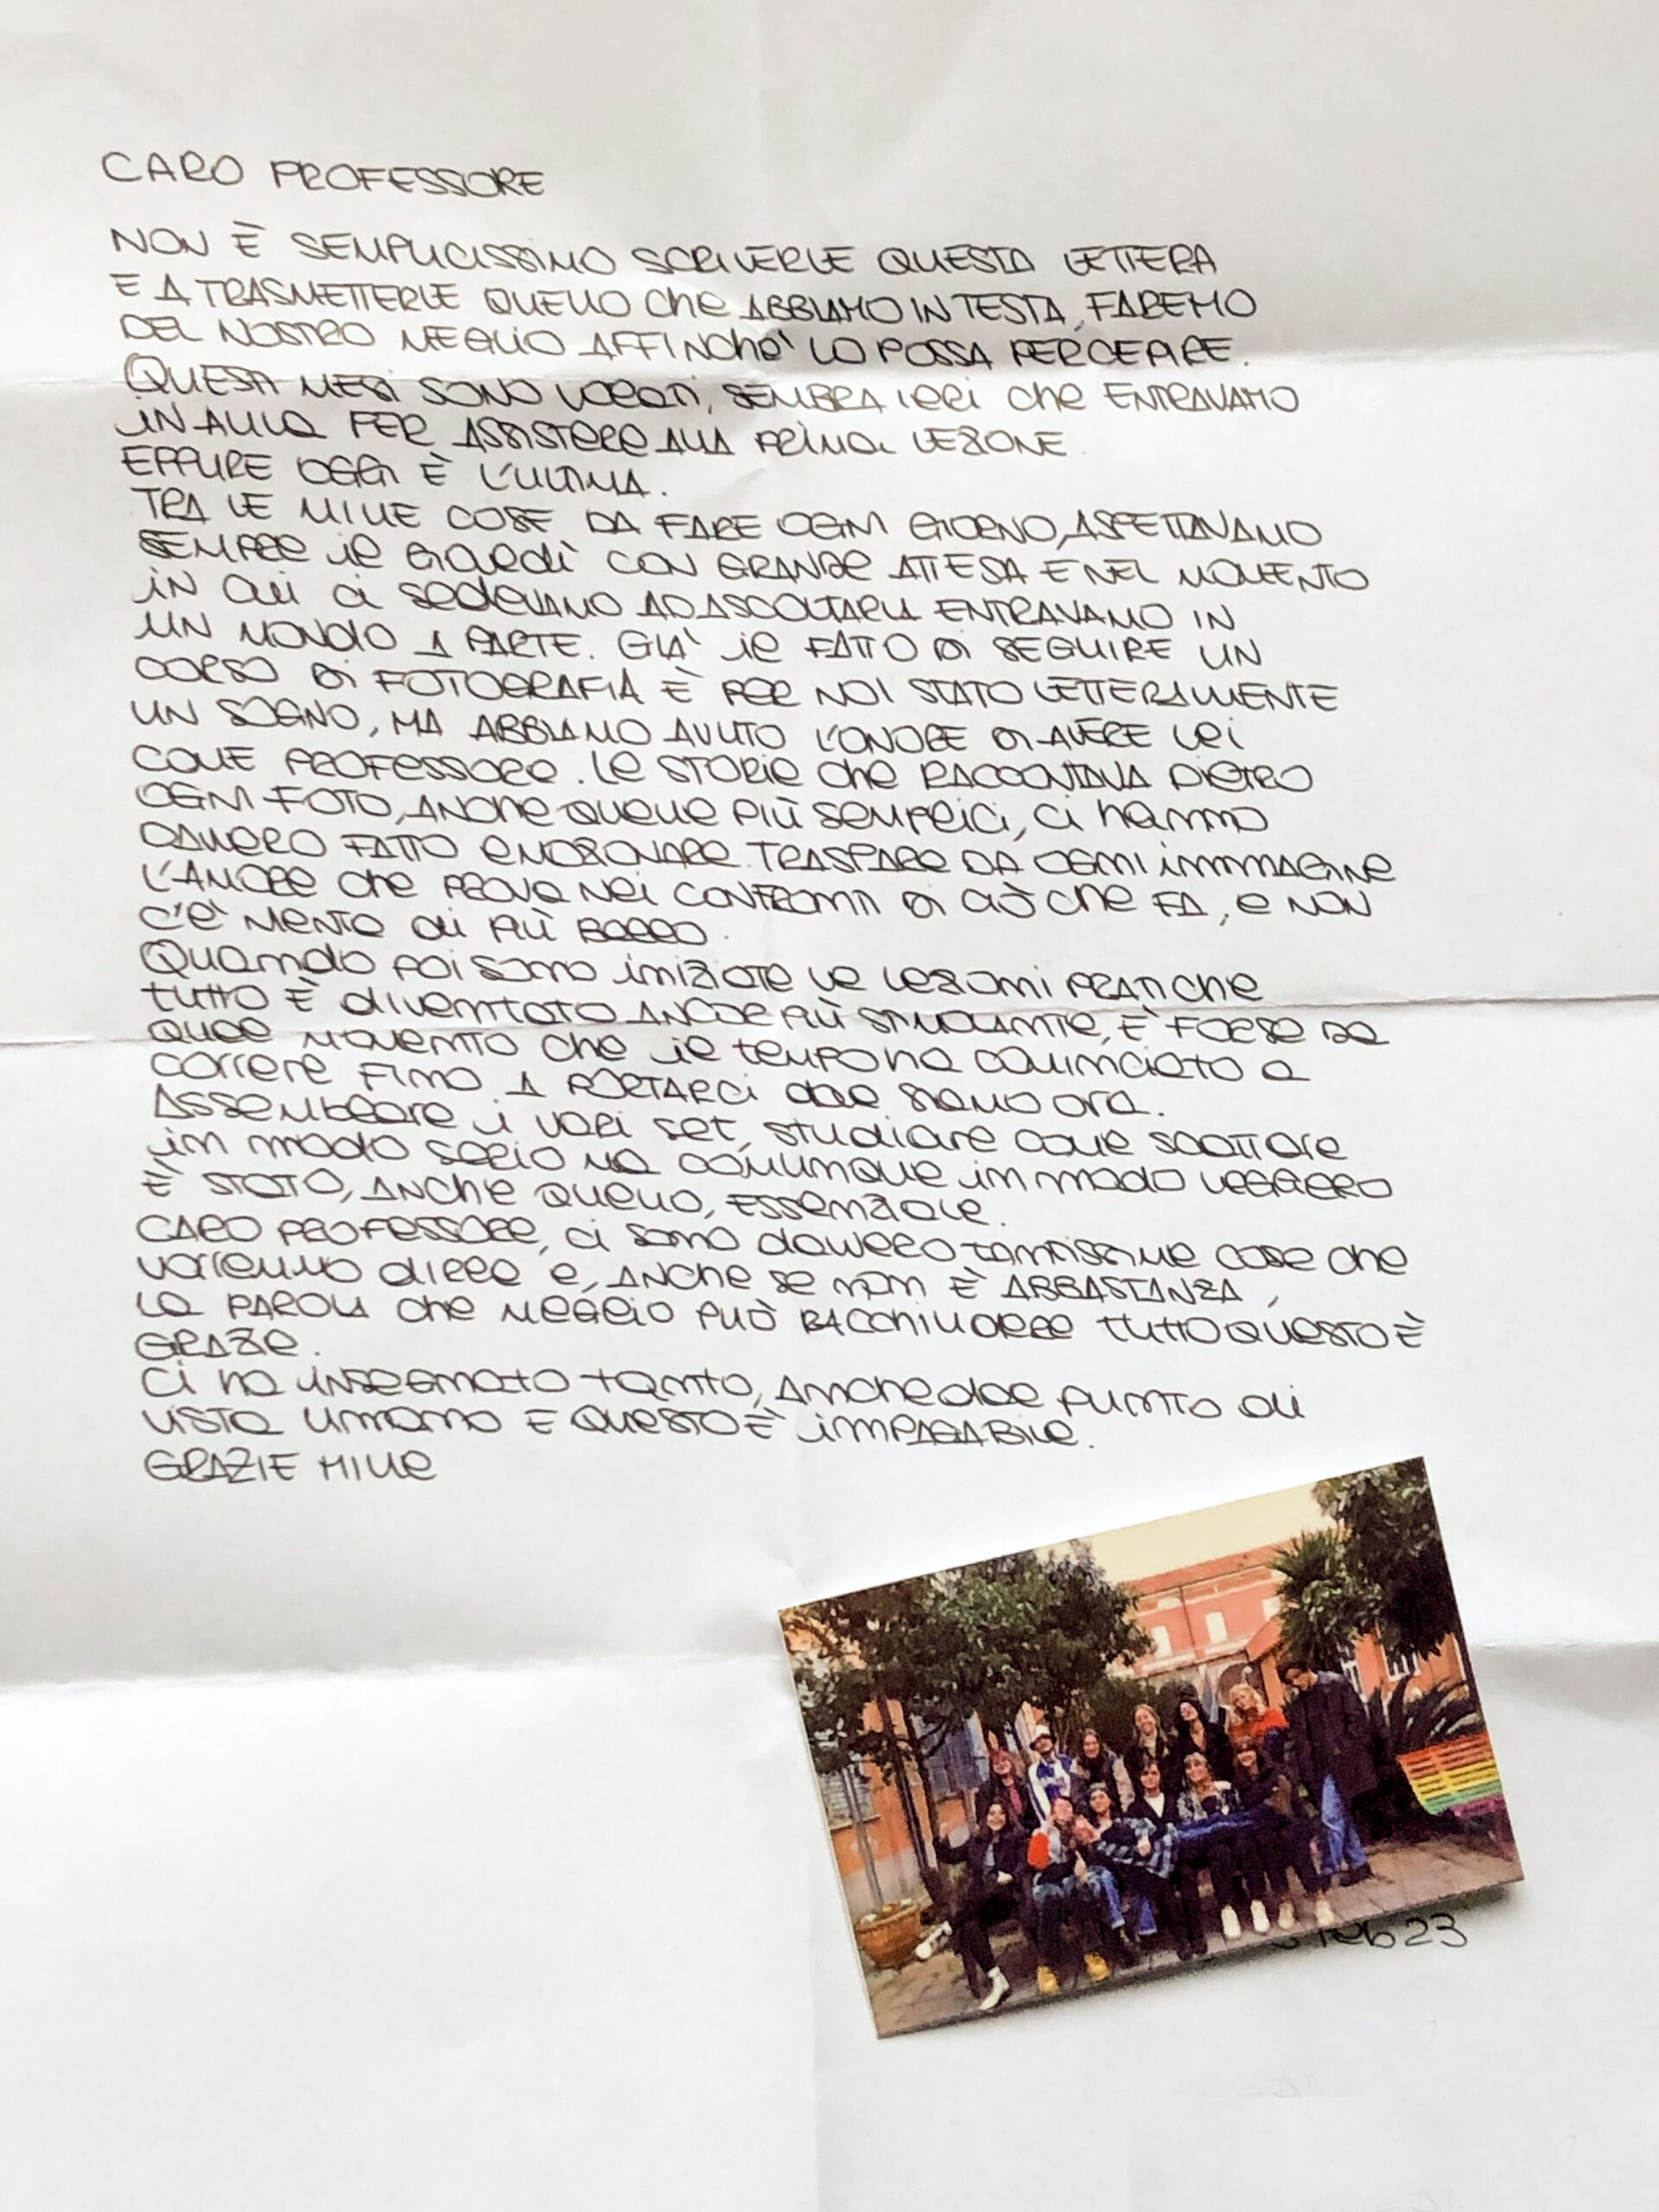 CARO PROFESSORE
NON È SEMPLICISSIMO SCRIVERLE QUESTA LETTERA
E A TRASMETTERLE QUELLO che ABBIAMO IN TESTA, FAREMO
DEL NOSTRO MEGLIO AFFINChé LO POSSA PERCEPIRE.
QUESTI MESI SONO VOLATI, SEMBRA IERI che ENTRAVAMO
IN AULA PER ASSISTERE ALLA PRIMA LEZIONE.
EPPURE OGGI È L'ULTIMA.
TRA LE MILLE COSE DA FARE OGNI GIORNO, ASPETTAVAMO
SEMPRE il GIOVEDÌ CON GRANDE ATTESA E NEL MOMENTO
IN CUI CI SEDEVAMO AD ASCOLTARLA ENTRAVAMO IN
UN MONDO A PARTE. GIA' il FATTO DI SEGUIRE UN
CORSO DI FOTOGRAFIA È PER NOI STATO LETTERALMENTE
UN SOGNO, MA ABBIAMO AVUTO L'ONORE DI AVERE LEI
COME PROFESSORE. LE STORIE che RACCONTAVA DIETRO
OGNI FOTO, ANChe QUELLE PIÙ SEMPLICI, CI hANNO
DAVVERO FATTO EMOZIONARE. TRASPARE DA OGNI IMMAGINE
L'AMORE che PROVA NEI CONFRONTI DI CIÒ che FA, E NON
C'E' NIENTE DI PIÙ BELLO.
QUANDO POI SONO INIZIATE LE LEZIONI PRATICHE
TUTTO È DIVENTATO ANCOR PIÙ STIMOLANTE, E' FORSE DA
QUEL MOMENTO che il TEMPO hA COMINCIATO A
CORRERE FINO A PORTARCI DOVE SIAMO ORA.
ASSEMBLARE I VARI SET, STUDIARE COME SCATTARE
IN MODO SERIO MA COMUNQUE IN MODO LEGGERO
È STATO, ANChe QUELLO, ESSENZIALE.
CARO PROFESSORE, CI SONO DAVVERO TANTISSIME COSE che
VORREMMO DIRLE E, ANChe SE NON È ABBASTANZA,
LA PAROLA che MEGLIO PUÒ RACChIUDERE TUTTO QUESTO È
GRAZIE.
CI hA INSEGNATO TANTO, ANChe DAL PUNTO DI
VISTA UMANO E QUESTO È IMPAGABILE.
GRAZIE MILLE
23